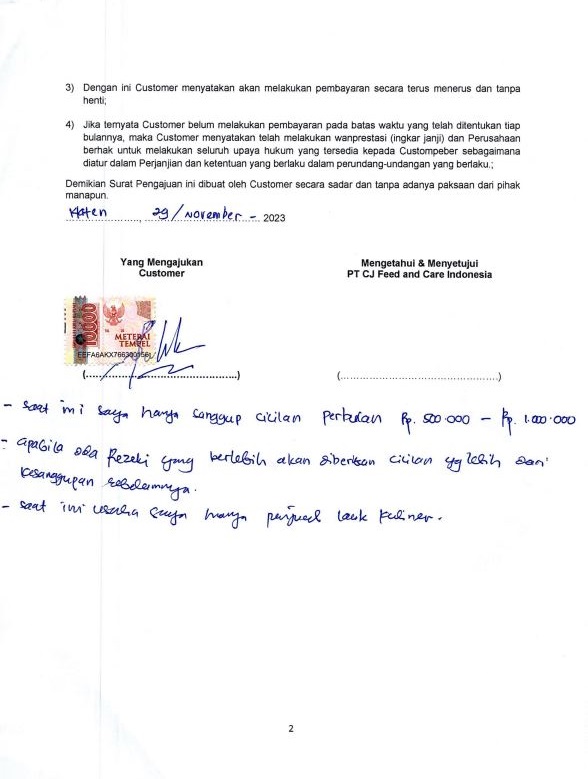 3) Dengan ini Customer menyatakan akan melakukan pembayaran secara terus menerus dan tanpa
henti;
4) Jika ternyata Customer belum melakukan pembayaran pada batas waktu yang telah ditentukan tiap
bulannya, maka Customer menyatakan telah melakukan wanprestasi (ingkar janji) dan Perusahaan
berhak untuk melakukan seluruh upaya hukum yang tersedia kepada Custompeber sebagaimana
diatur dalam Perjanjian dan ketentuan yang berlaku dalam perundang-undangan yang berlaku.;
Demikian Surat Pengajuan ini dibuat oleh Customer secara sadar dan tanpa adanya paksaan dari pihak
manapun.
Klaten, 29/November - 2023
Yang Mengajukan
Customer
Mengetahui & Menyetujui
PT CJ Feed and Care Indonesia
10000
METERAI
TEMPEL
(..........................................)
(..........................................)
- saat ini saya hanya sanggup cicilan perbulan Rp. 500.000 - Rp. 1.000.000
- apabila ada Rezeki yang berlebih akan diberikan cicilan yg lebih dari
kesanggupan sebelumnya.
- saat ini usaha saya hanya penjual lauk kuliner.
2